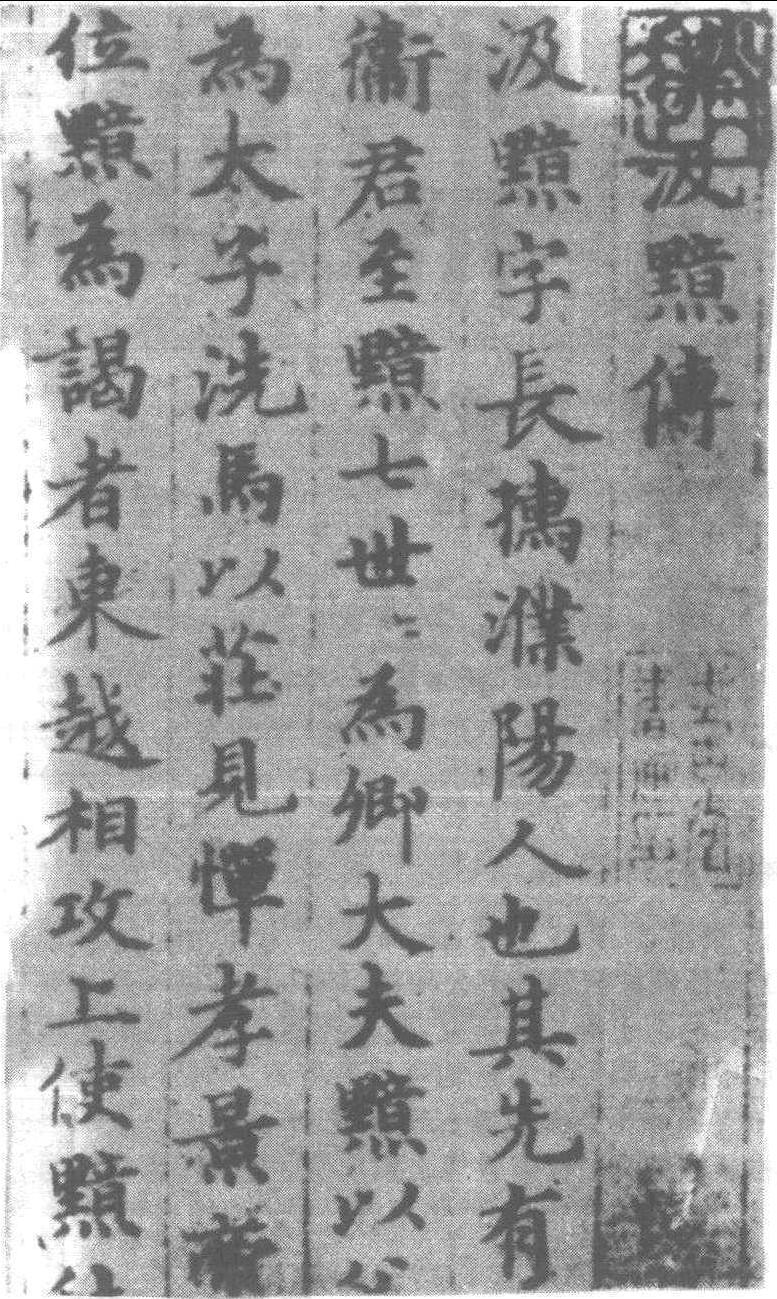 汲黯傳
汲黯字長孺濮陽人也其先有
衛君至黯七世〻為卿大夫黯以
為太子洗馬以莊見憚孝景帝
位黯為謁者東越相攻上使黯